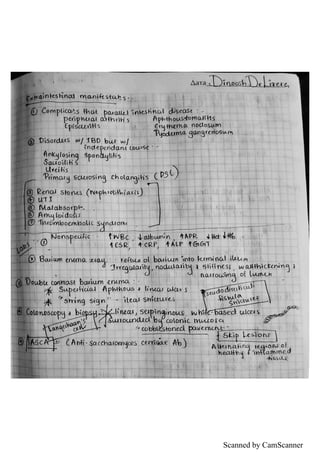 Dinosch DeLivera.
Extraintestinal manifestatns :-
① Complicatns that parallel intestinal disease :-
peripheral arthritis Aphthous stomatitis
Episcleritis Erythema nodosum
Pyoderma gangrenosum
② Disorders w/ IBD but w/
independant course :-
Ankylosing Spondylitis
Sacroiliitis
Uveitis
Primary sclerosing cholangitis (PSC)
③ Renal stones (Nephrolithiasis)
④ UTI
⑤ Malabsorptn.
⑥ Amyloidosis
⑦ Thromboembolic syndrome
Labs:
① Nonspecific :- ↑WBC ↓albumin ↑APR ↓Hct ↓Hb
↑ESR, ↑CRP, ↑ALP ↑GGT
② Barium enema xray - reflux of barium into terminal ileum
Irregularity, nodularity, stiffness, wall thickening &
narrowing of lumen
③ Double contrast barium enema -
* Superficial Aphthous & linear ulcers
* "string sign" - ileal strictures
pseudodiverticuli
fistula
strictures
④ Colonoscopy & biopsy - linear, serpinginous white based ulcers
surrounded by colonic mucosa
Langerhans's cell
"cobblestoned pavement"
⑤ ASCA (Anti-saccharomyces cerevisiae Ab)
Skip Lesions
Alternating regions of
healthy & inflammed
tissue
Scanned by CamScanner